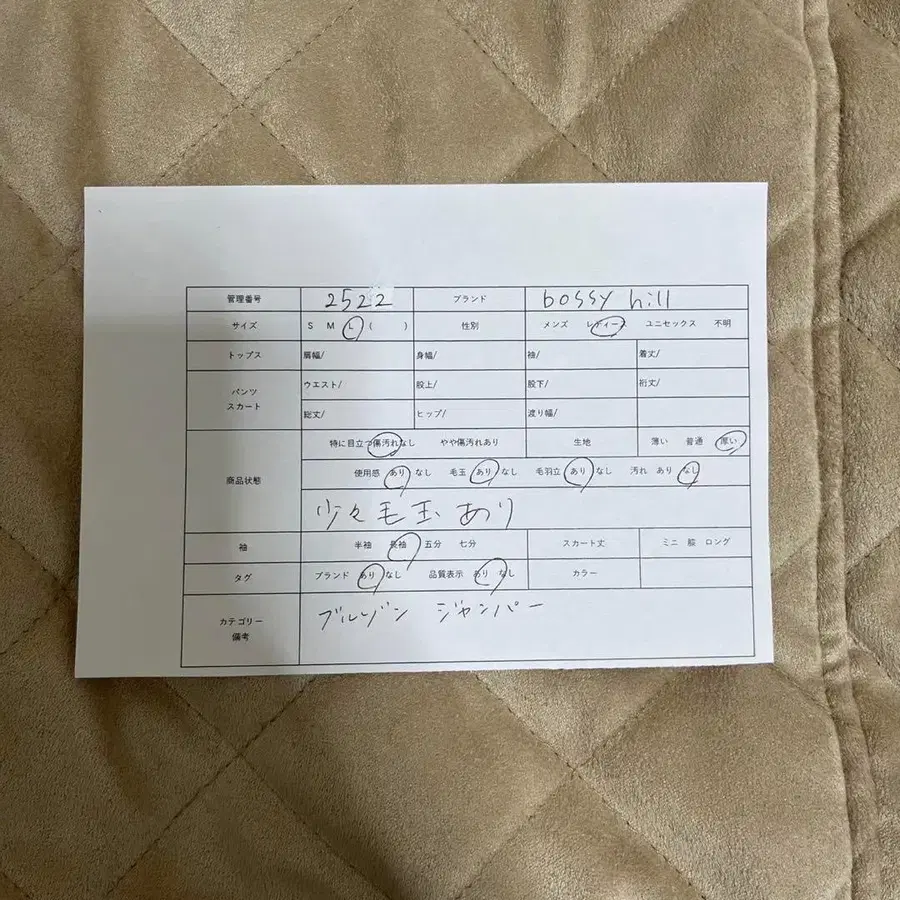 管理番号 2522 ブランド bossy hill
サイズ S M L ( ) 性別 メンズ レディース ユニセックス 不明
トップス 肩幅/ 身幅/ 袖/ 着丈/
パンツ スカート ウエスト/ 股上/ 股下/ 裄丈/
総丈/ ヒップ/ 渡り幅/
商品状態 特に目立つ傷汚れなし やや傷汚れあり 生地 薄い 普通 厚い
使用感 あり なし 毛玉 あり なし 毛羽立 あり なし 汚れ あり なし
少々毛玉あり
袖 半袖 長袖 五分 七分 スカート丈 ミニ 膝 ロング
タグ ブランド あり なし 品質表示 あり なし カラー
カテゴリー 備考 ブルゾン ジャンパー